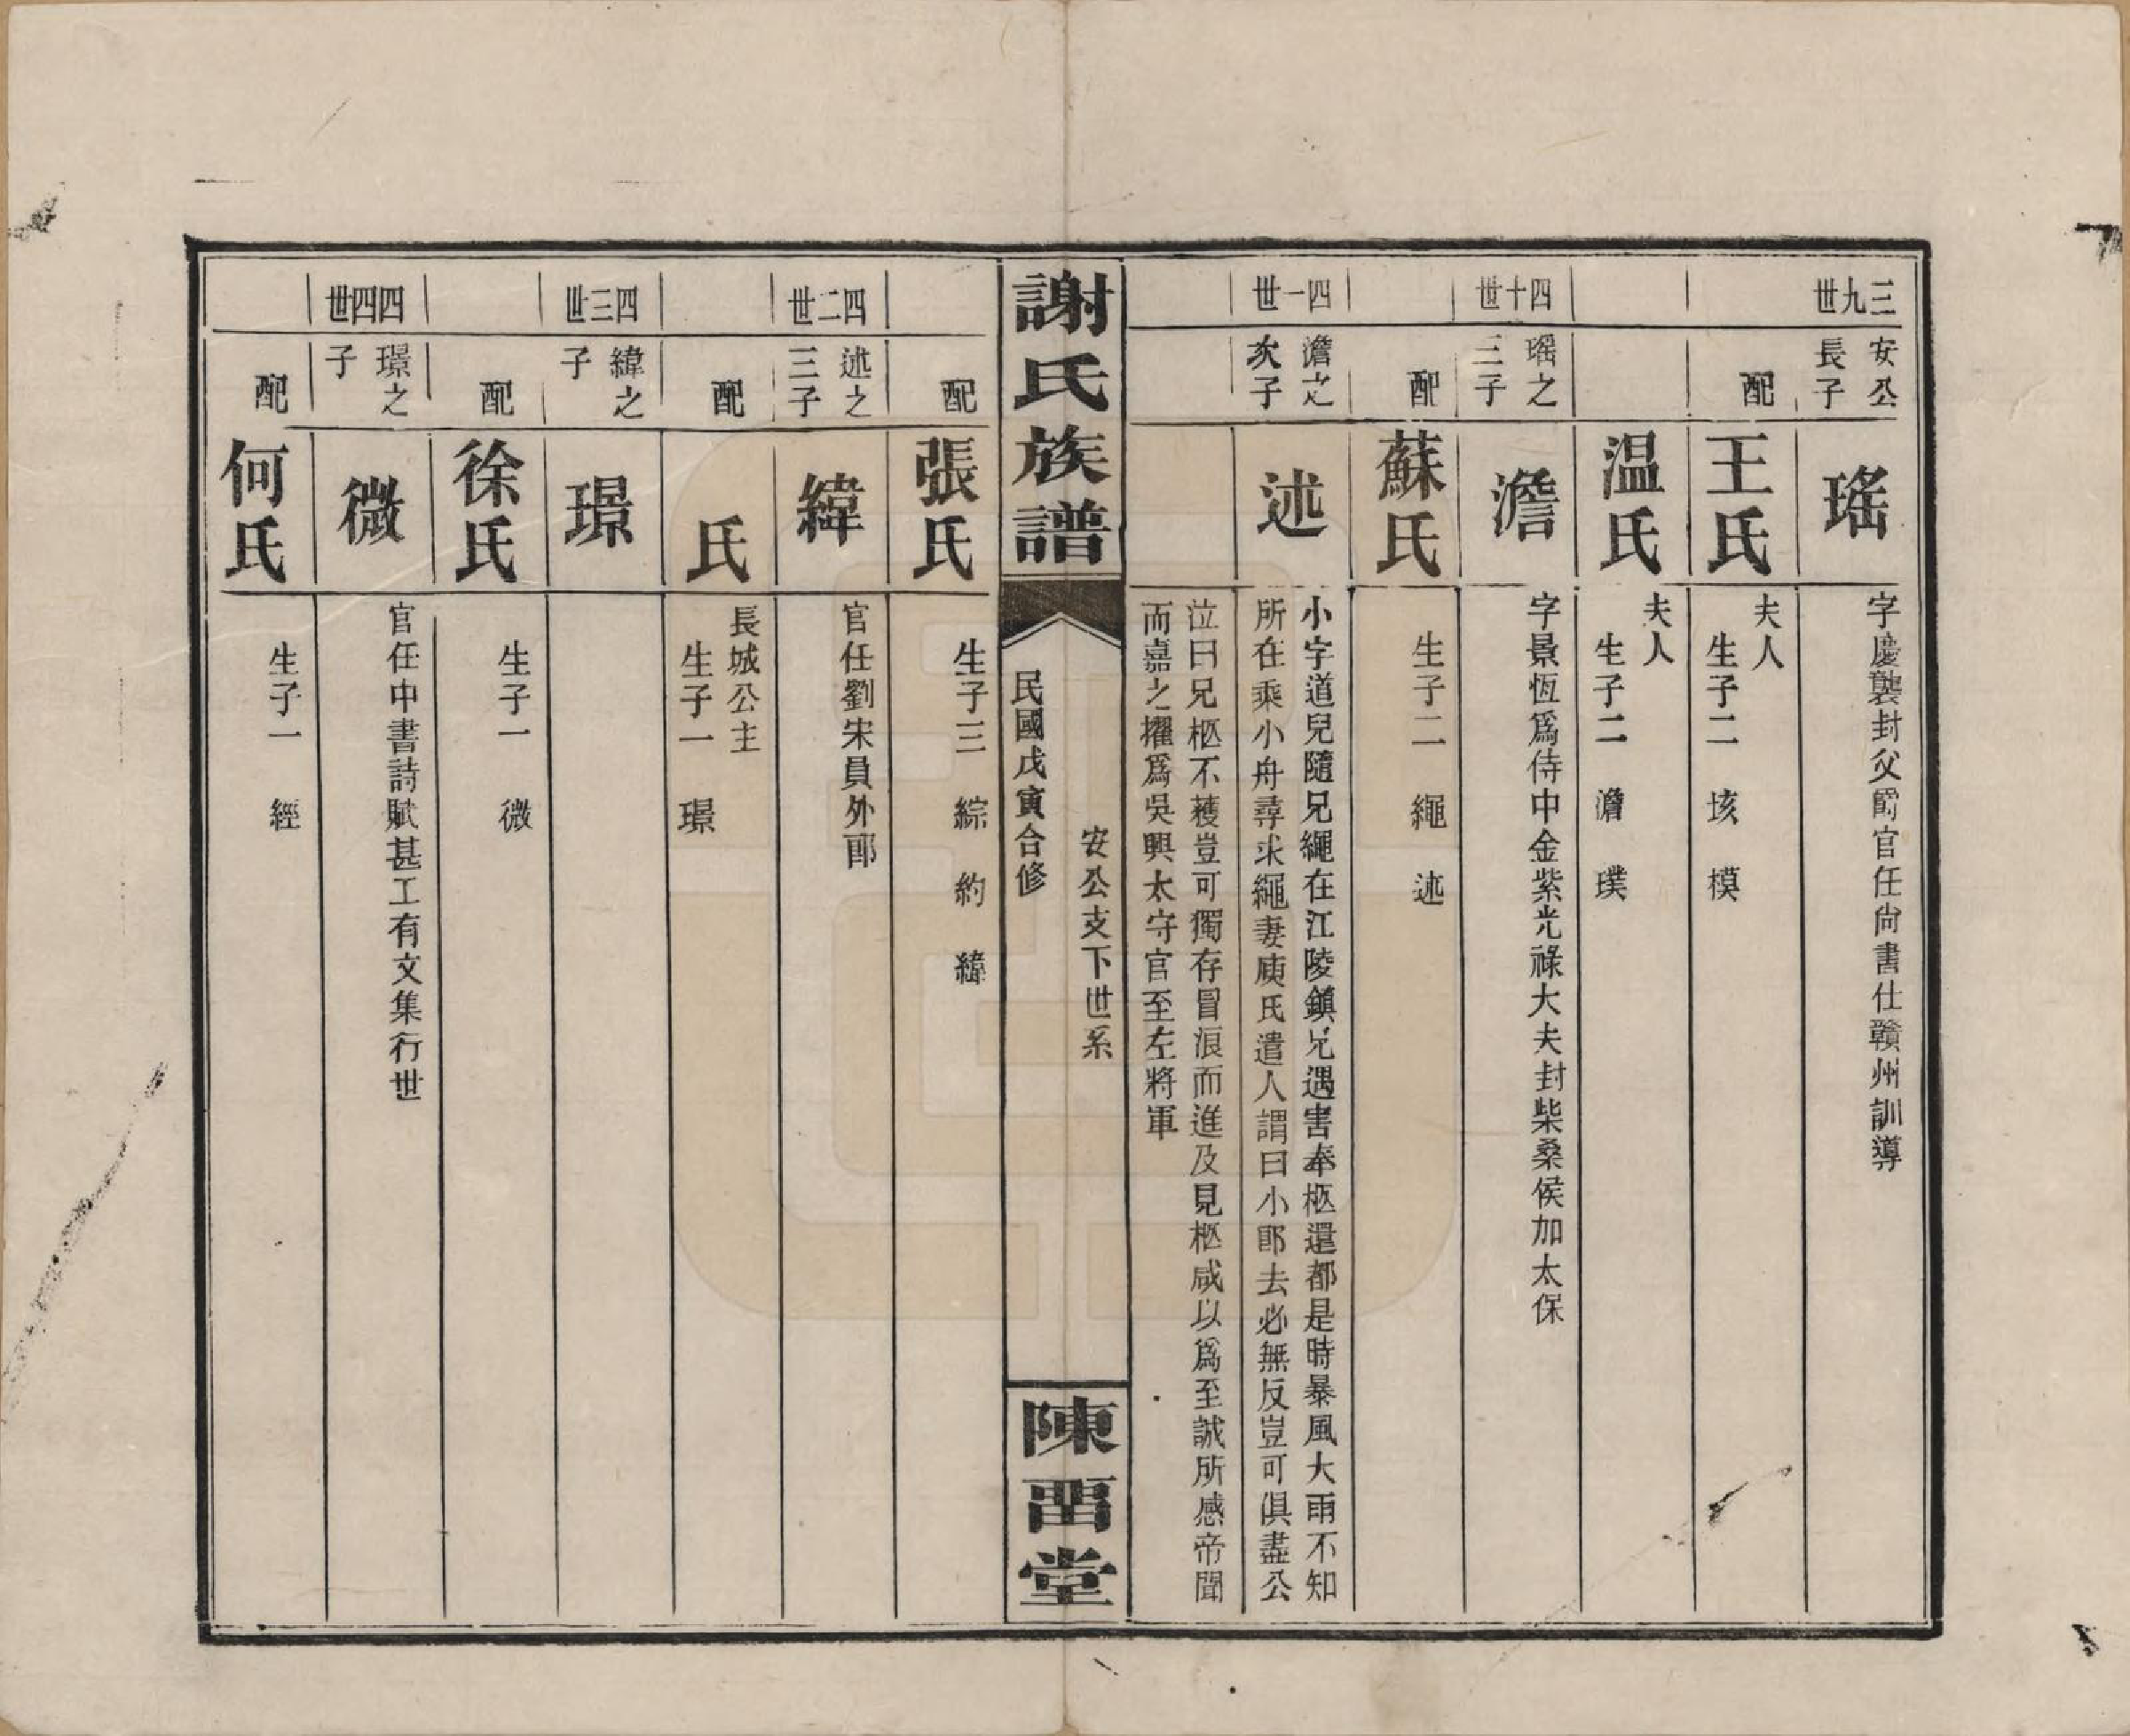 三九世
安公
長子
瑤
字慶襲封父爵官任尙書仕贛州訓導
配
王氏
夫人
生子二 垓 模
温氏
夫人
生子二 澹 璞
四十世
瑤之
三子
澹
字景恆爲侍中金紫光祿大夫封柴桑侯加太保
配
蘇氏
生子二 繩 述
四一世
澹之
次子
述
小字道兒隨兄繩在江陵鎮兄遇害奉柩還都是時暴風大雨不知
所在乘小舟尋求繩妻庾氏遣人謂曰小郎去必無反豈可俱盡公
泣曰兄柩不獲豈可獨存冒浪而進及見柩咸以爲至誠所感帝聞
而嘉之擢爲吳興太守官至左將軍
謝氏族譜
安公支下世系
民國戊寅合修
陳畱堂
配
張氏
生子三 綜 約 緯
四二世
述之
三子
緯
官任劉宋員外郎
配
氏
長城公主
生子一 璟
四三世
緯之
子
璟
配
徐氏
生子一 微
四四世
璟之
子
微
官任中書詩賦甚工有文集行世
配
何氏
生子一 經